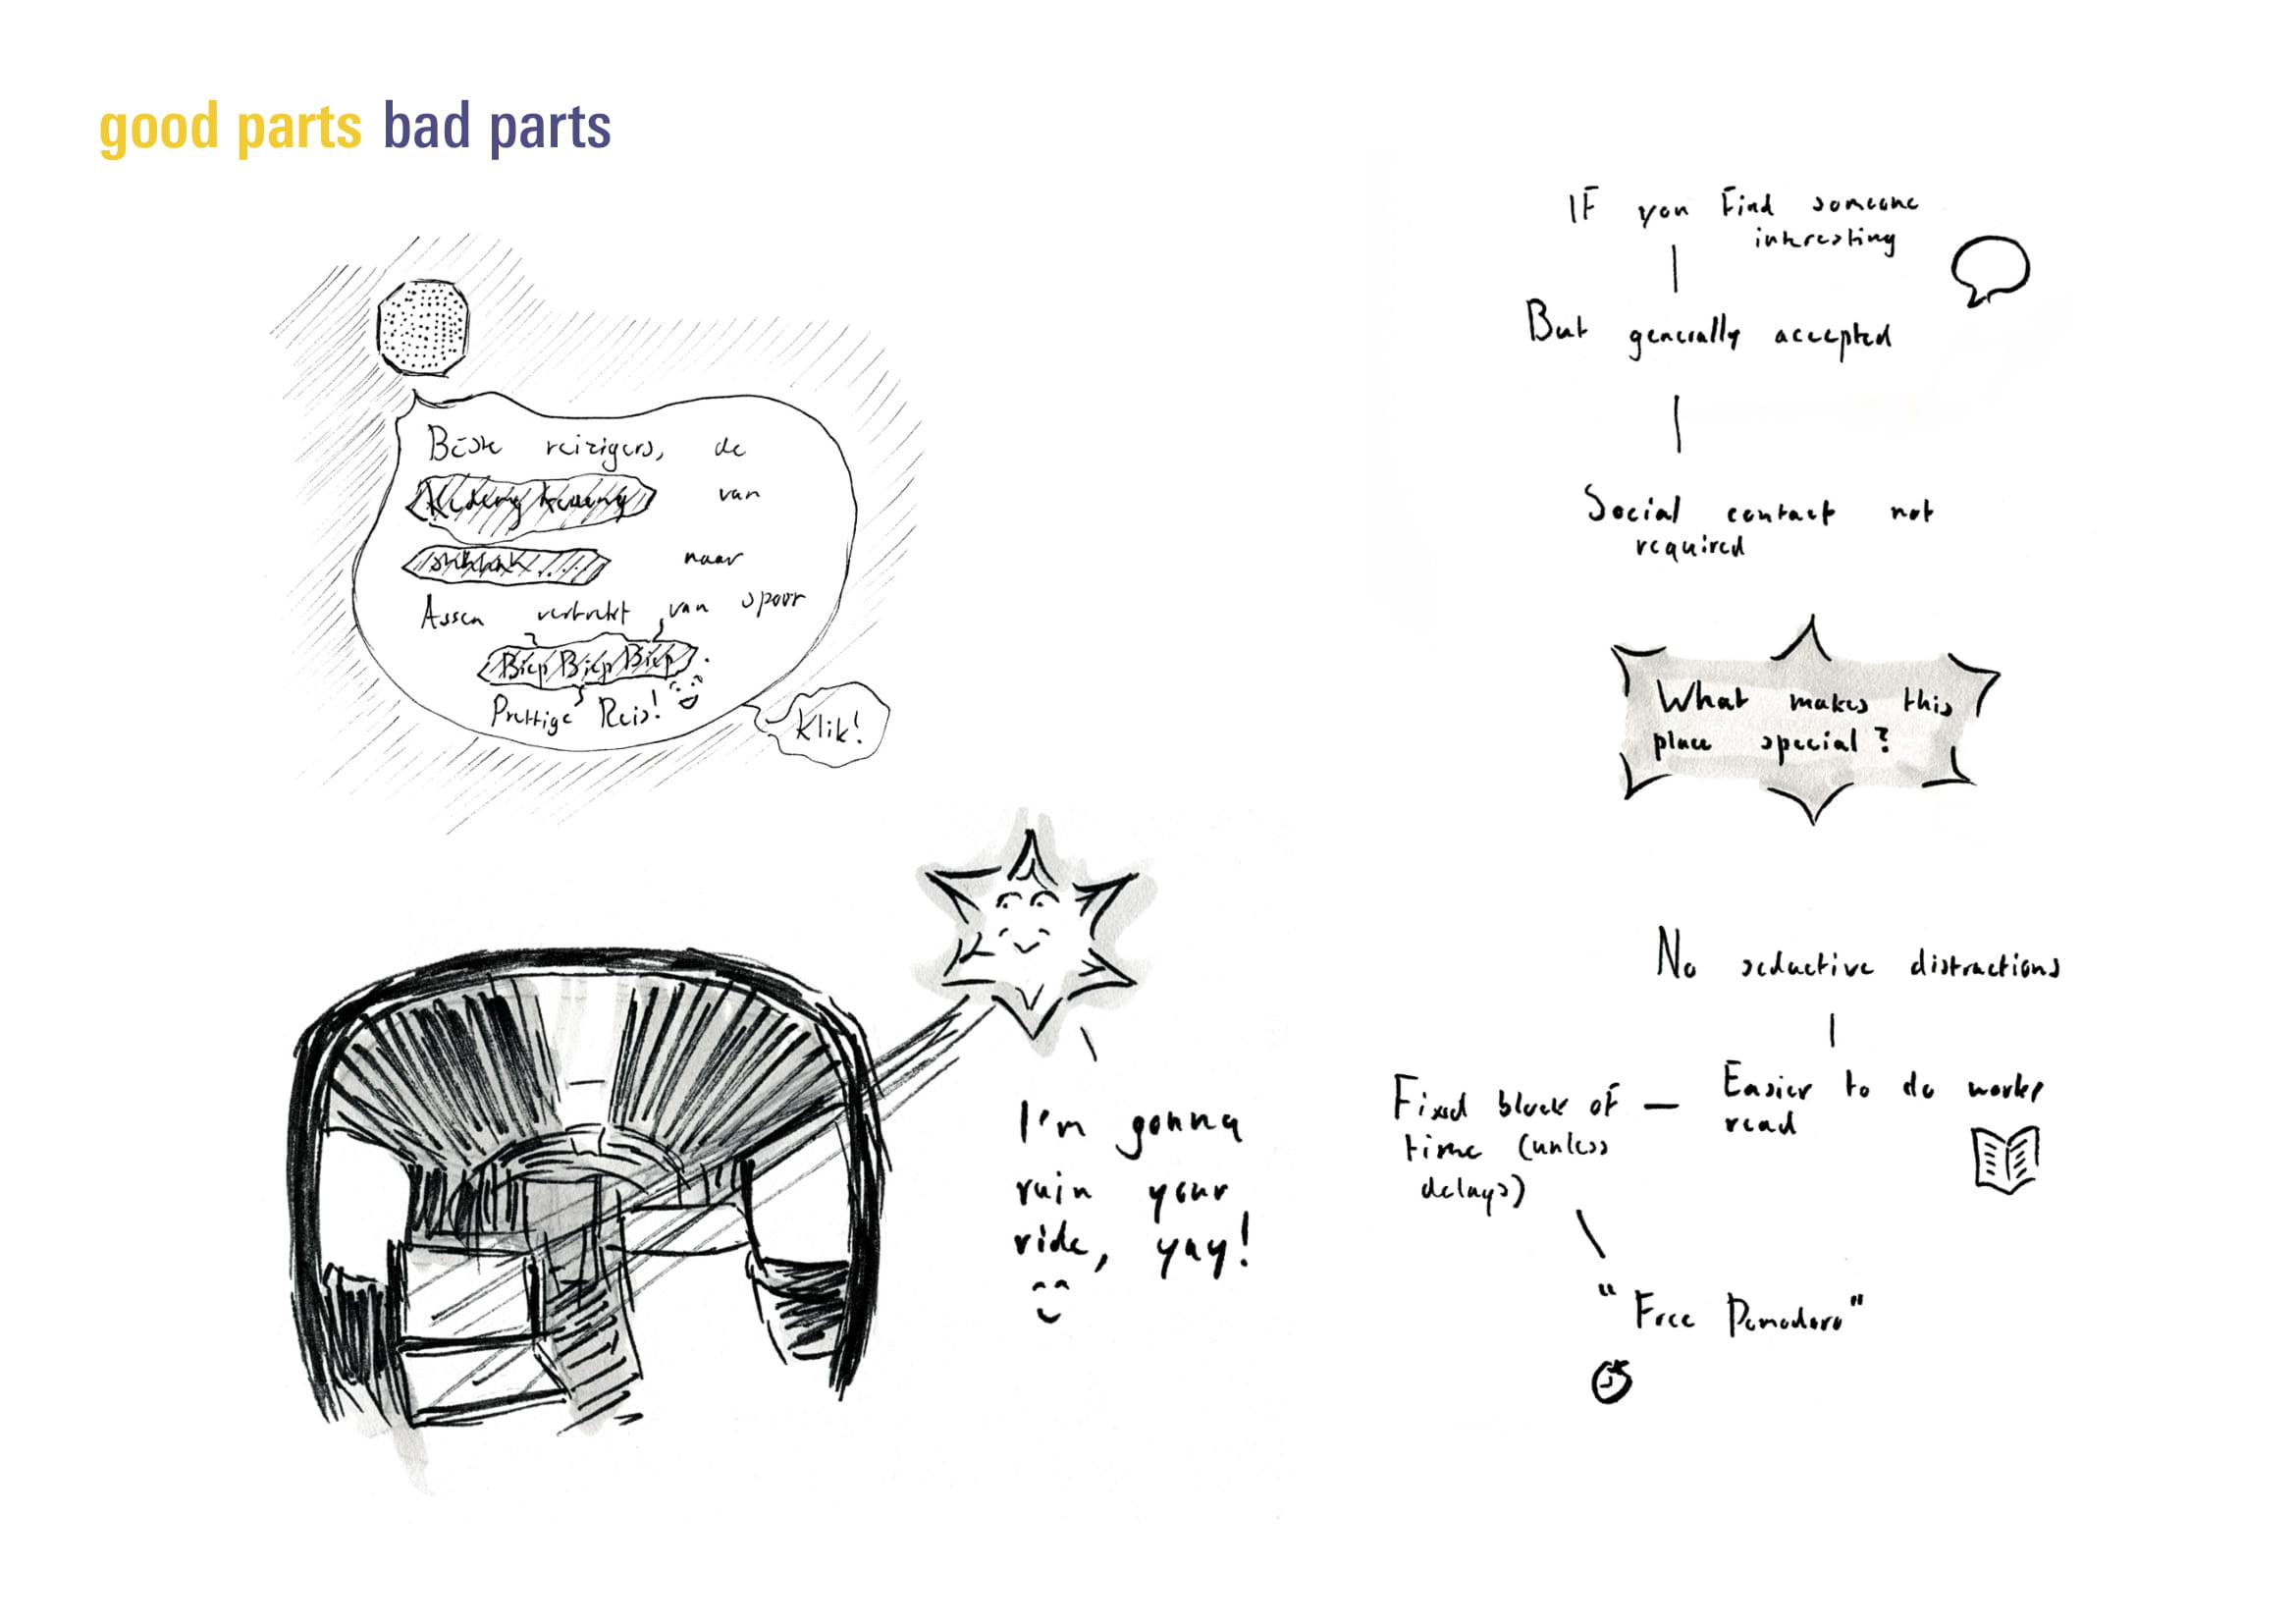 good parts bad parts
Beste reizigers, de
van
naar
Assen vertrekt van spoor
Biep Biep Biep.
Prettige Reis!
Klik!
I'm gonna
ruin your
ride, yay!
IF you Find someone
interesting
But generally accepted
Social contact not
required
What makes this
place special?
No seductive distractions
Easier to do work,
read
Fixed block of
time (unless
delays)
"Free Pomodoro"